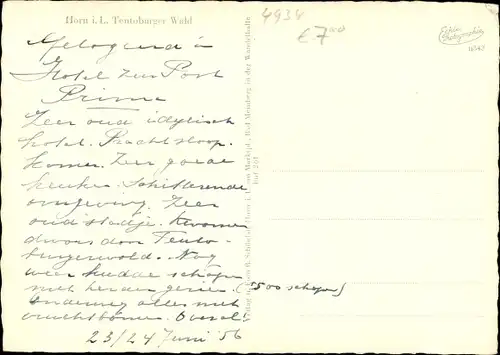 Horn i. L. Teutoburger Wald
4934
€7
Echte Photographie
Gelogeerd in
Hotel zur Post
Prima
Zeer oud idyllisch
hotel. Prachtslaap-
kamer. Zeer goede
keuken. Schitterende
omgeving. Zeer
oud stadje. Kwamen
dwars door Teuto-
burgerwald. Nog
weer kudde schapen
met herder gezien. (500 schapen)
Onderweg alles met
vruchtbomen. Overal!
23/24 Juni '56
Bad Meinberg in der Wandelhalle
Ruf 201